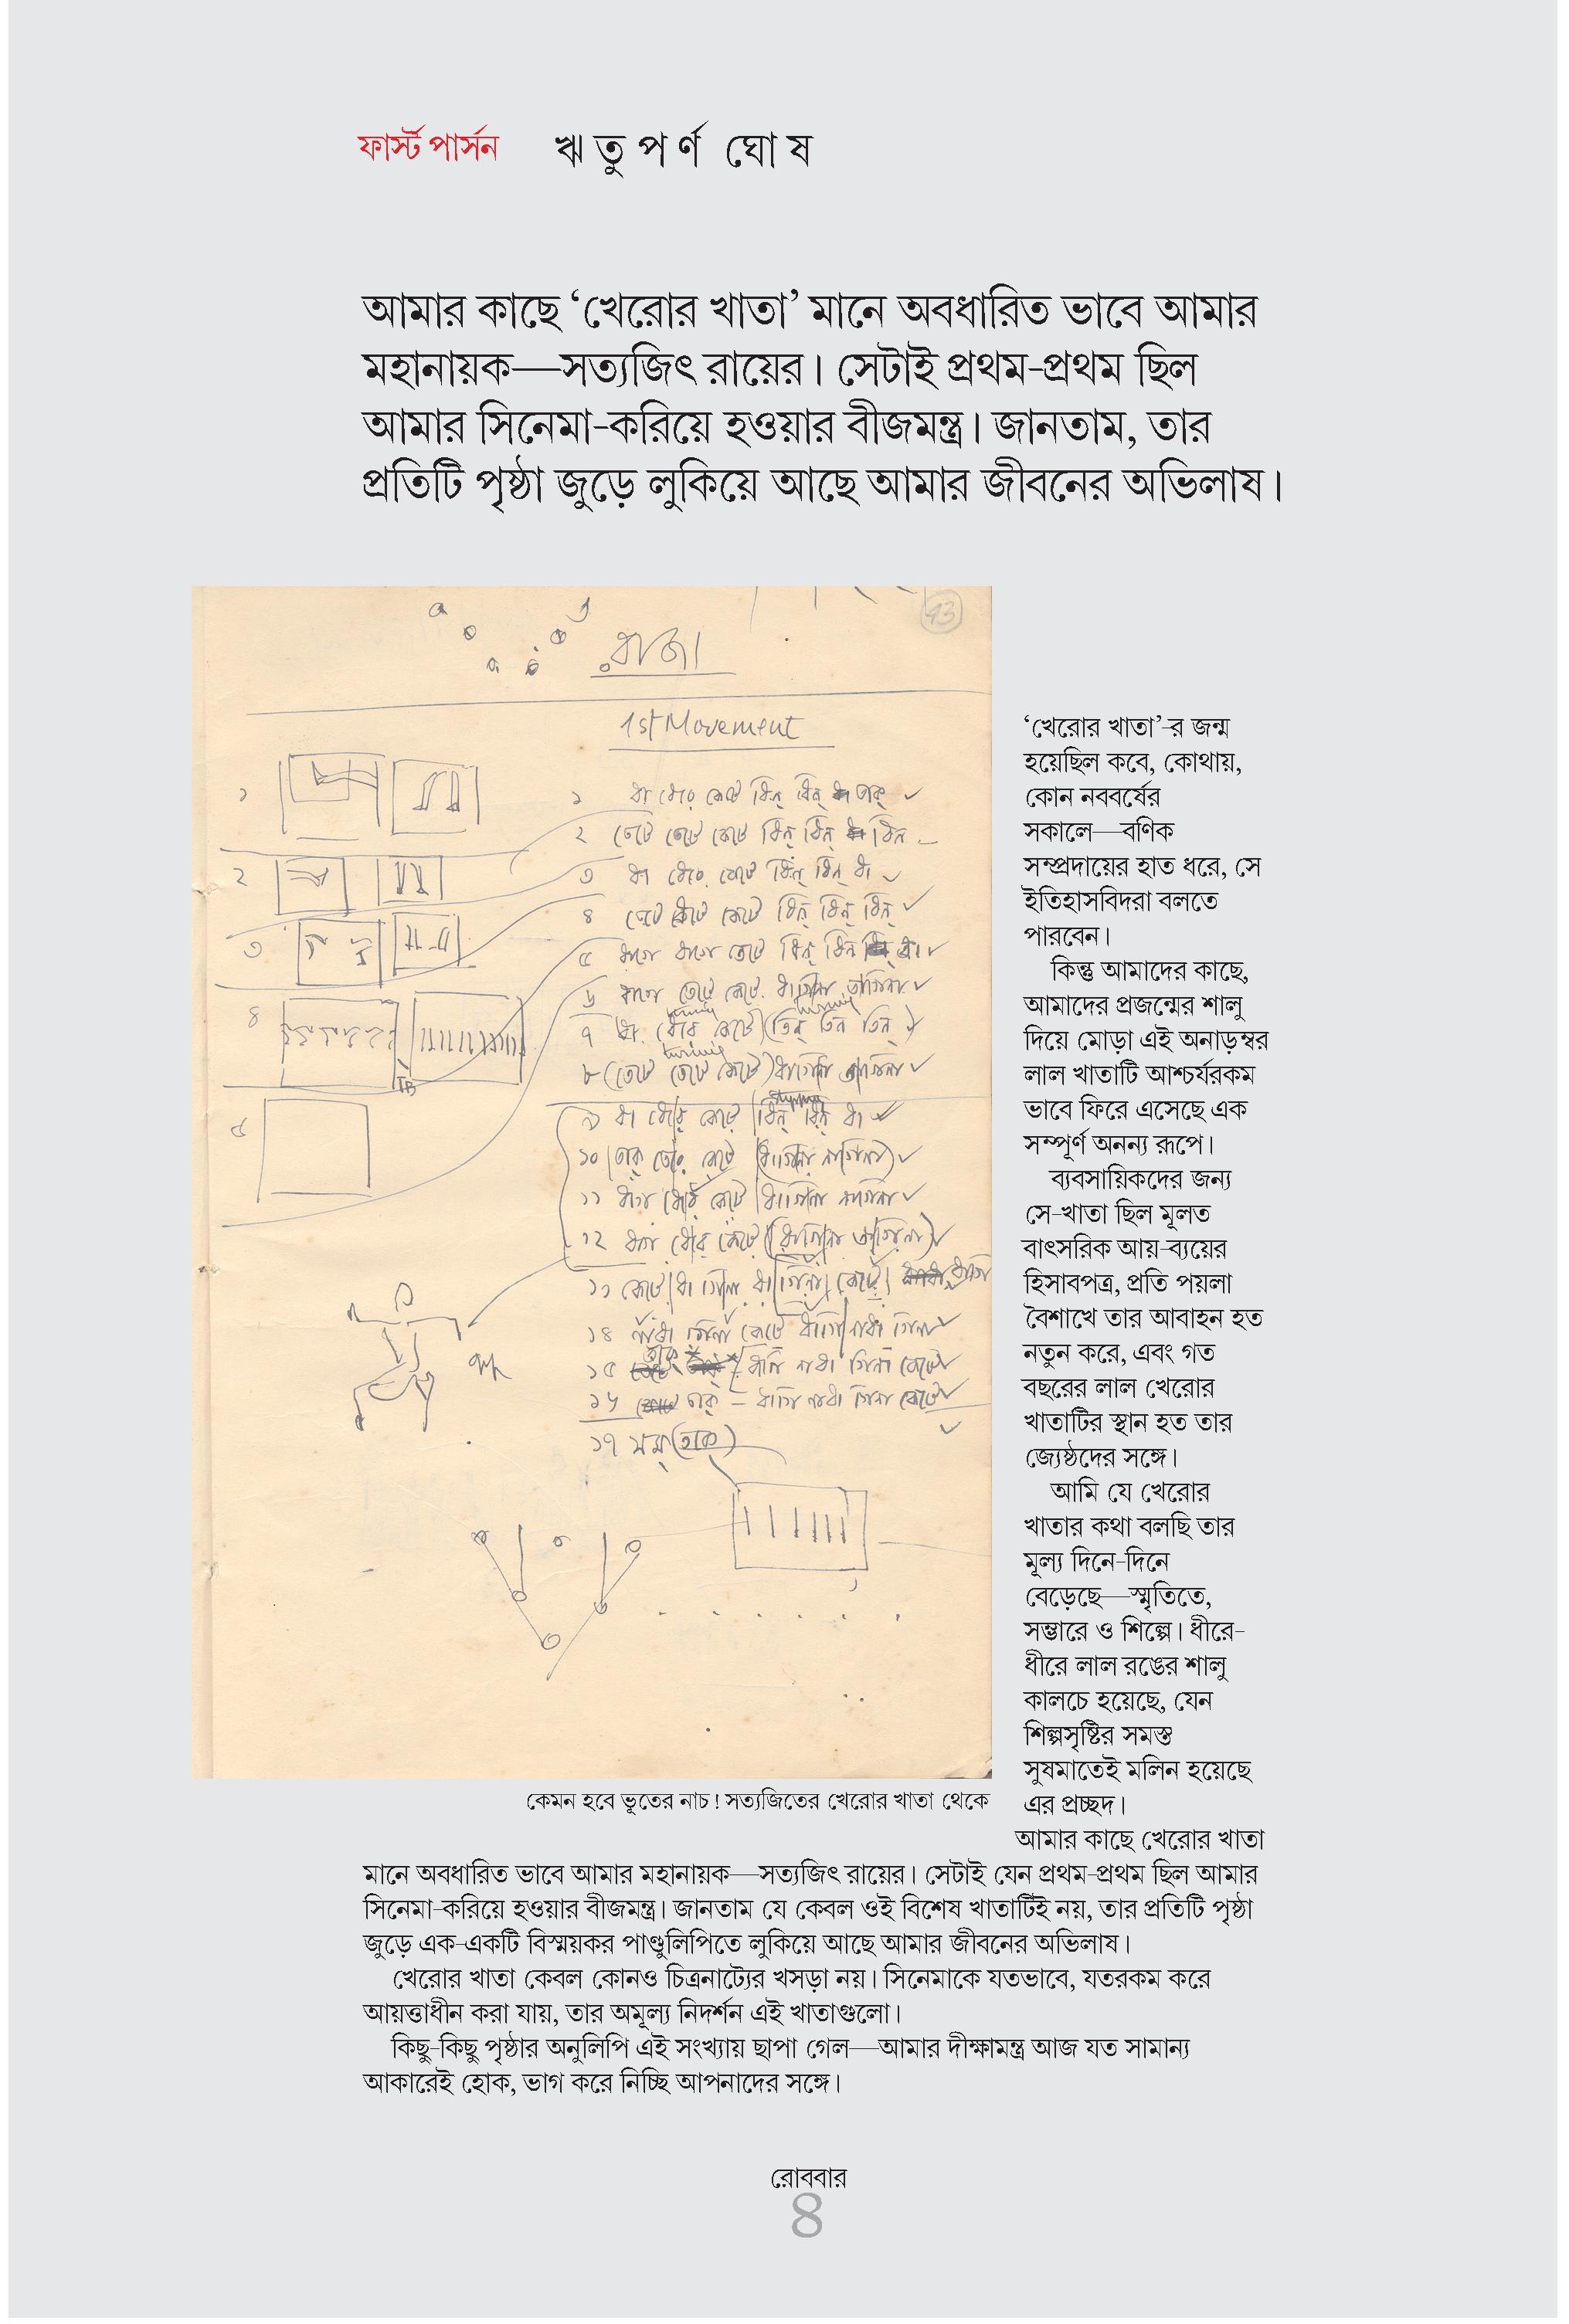 ফার্স্ট পার্সন ঋতুপর্ণ ঘোষ
আমার কাছে ‘খেরোর খাতা’ মানে অবধারিত ভাবে আমার
মহানায়ক—সত্যজিৎ রায়ের। সেটাই প্রথম-প্রথম ছিল
আমার সিনেমা-করিয়ে হওয়ার বীজমন্ত্র। জানতাম, তার
প্রতিটি পৃষ্ঠা জুড়ে লুকিয়ে আছে আমার জীবনের অভিলাষ।
43
রাজা
1st Movement
১ ধা ধেরে কেটে ধিন্ ধিন্ তাক্
২ তেটে তেটে কেটে ধিন্ ধিন্ ধিন
৩ ধা ধেরে কেটে ধিন্ ধিন্ ধা
৪ তেটে কেটে কেটে ধিন্ ধিন্ ধিন্
৫ ধাগে ধাগে তেটে ধিন্ ধিন ধা
৬ ধাগে তেটে কেটে ধাগিনা তাগিনা
৭ ধা (ধেরে কেটে) (তিন্ তিন তিন্)
turning
৮ (তেটে তেটে কেটে) ধাগিনা তাগিনা
৯ ধা ধেরে কেটে ধিন্ ধিন্ ধা
১০ তাক্ তেরে কেটে (ধাগিনা নাগিনা)
১১ ধাগে ধেরে কেটে ধাগিনা নাগিনা
১২ ধেরে কেটে (ধাগিনা তাগিনা)
১৩ কেটে ধা গিনা ধা গিনা কেটে
১৪ নাধা গিনা কেটে ধাগি নাধা গিনা
১৫ তাক্ – ধাগি নাধা গিনা কেটে
১৬ তাক্ – ধাগি নাধা গিনা কেটে
১৭ সম্ (তাক্)
১
২
৩
৪
৫
কেমন হবে ভূতের নাচ! সত্যজিতের খেরোর খাতা থেকে
‘খেরোর খাতা’-র জন্ম
হয়েছিল কবে, কোথায়,
কোন নববর্ষের
সকালে—বণিক
সম্প্রদায়ের হাত ধরে, সে
ইতিহাসবিদরা বলতে
পারবেন।
কিন্তু আমাদের কাছে,
আমাদের প্রজন্মের শালু
দিয়ে মোড়া এই অনাড়ম্বর
লাল খাতাটি আশ্চর্যরকম
ভাবে ফিরে এসেছে এক
সম্পূর্ণ অনন্য রূপে।
ব্যবসায়িকদের জন্য
সে-খাতা ছিল মূলত
বাৎসরিক আয়-ব্যয়ের
হিসাবপত্র, প্রতি পয়লা
বৈশাখে তার আবাহন হত
নতুন করে, এবং গত
বছরের লাল খেরোর
খাতাটির স্থান হত তার
জ্যেষ্ঠদের সঙ্গে।
আমি যে খেরোর
খাতার কথা বলছি তার
মূল্য দিনে-দিনে
বেড়েছে—স্মৃতিতে,
সম্ভারে ও শিল্পে। ধীরে-
ধীরে লাল রঙের শালু
কালচে হয়েছে, যেন
শিল্পসৃষ্টির সমস্ত
সুষমাতেই মলিন হয়েছে
এর প্রচ্ছদ।
আমার কাছে খেরোর খাতা
মানে অবধারিত ভাবে আমার মহানায়ক—সত্যজিৎ রায়ের। সেটাই যেন প্রথম-প্রথম ছিল আমার
সিনেমা-করিয়ে হওয়ার বীজমন্ত্র। জানতাম যে কেবল ওই বিশেষ খাতাটিই নয়, তার প্রতিটি পৃষ্ঠা
জুড়ে এক-একটি বিস্ময়কর পাণ্ডুলিপিতে লুকিয়ে আছে আমার জীবনের অভিলাষ।
খেরোর খাতা কেবল কোনও চিত্রনাট্যের খসড়া নয়। সিনেমাকে যতভাবে, যতরকম করে
আয়ত্তাধীন করা যায়, তার অমূল্য নিদর্শন এই খাতাগুলো।
কিছু-কিছু পৃষ্ঠার অনুলিপি এই সংখ্যায় ছাপা গেল—আমার দীক্ষামন্ত্র আজ যত সামান্য
আকারেই হোক, ভাগ করে নিচ্ছি আপনাদের সঙ্গে।
রোববার
৪